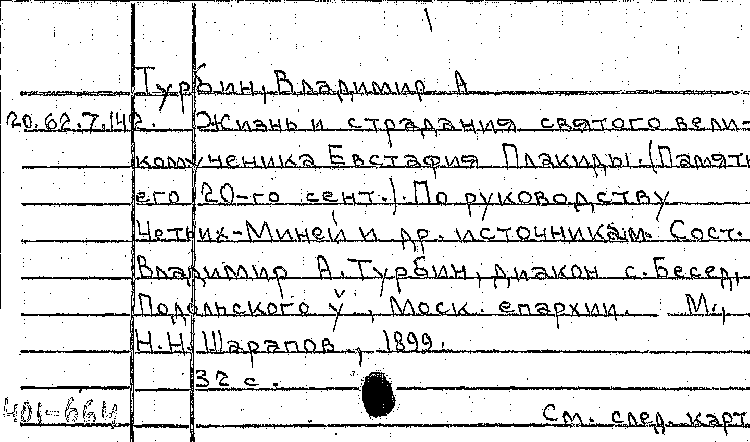 Турбин, Владимир А
20.62.7.142. Жизнь и страдания святого вели-
комученика Евстафия Плакиды. (Память
его 20-го сент.). По руководству
Четьих-Миней и др. источникам. Сост.
Владимир А. Турбин, диакон с. Бесед,
Подольского у., Моск. епархии. М.,
Н.Н. Шарапов, 1899.
32 с.
401-664
См. след. карт